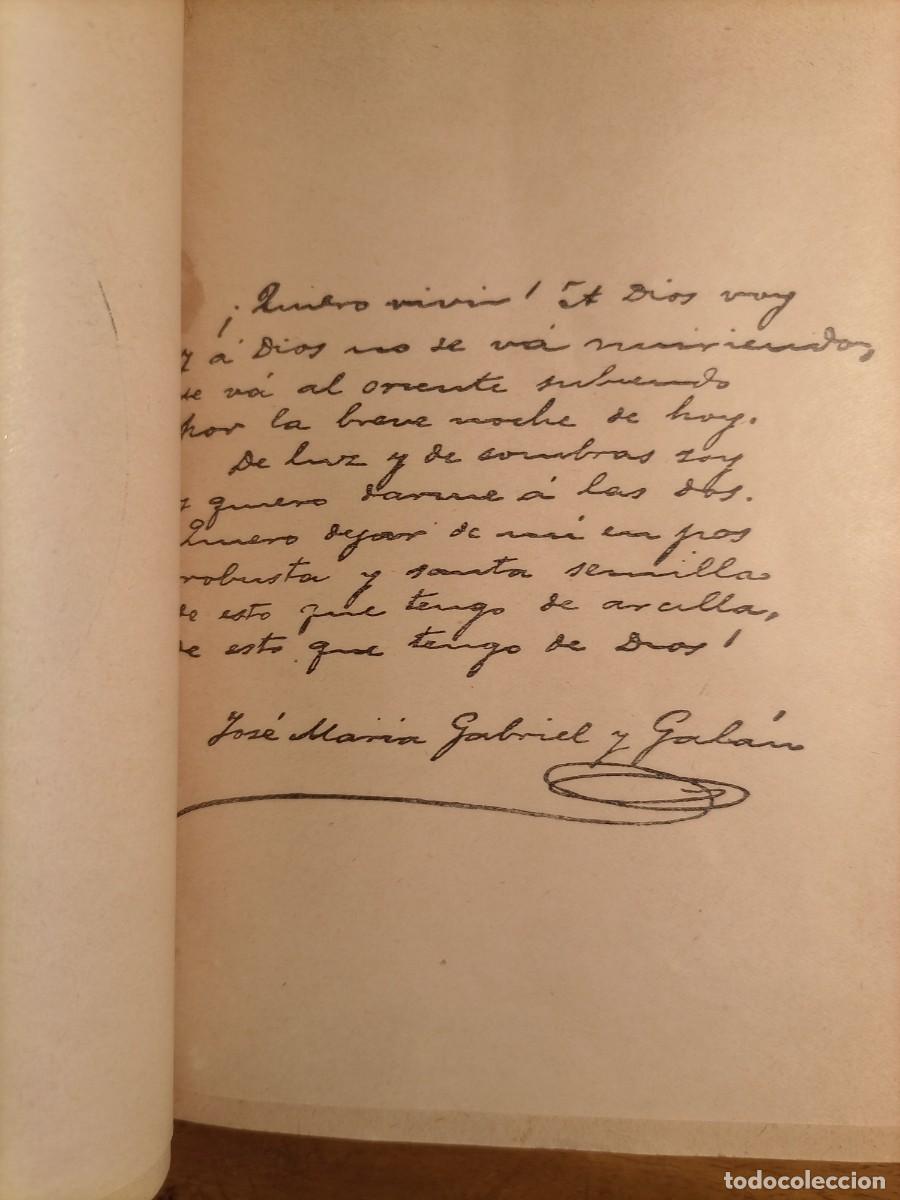 ¡Quiero vivir! A Dios voy
y á Dios no se vá muriendo,
se vá al oriente subiendo
por la breve noche de hoy.
De luz y de sombras soy
y quiero darme á las dos.
Quiero dejar de mí en pos
robusta y santa semilla
de esto que tengo de arcilla,
de esto que tengo de Dios!
José Maria Gabriel y Galán
todocoleccion